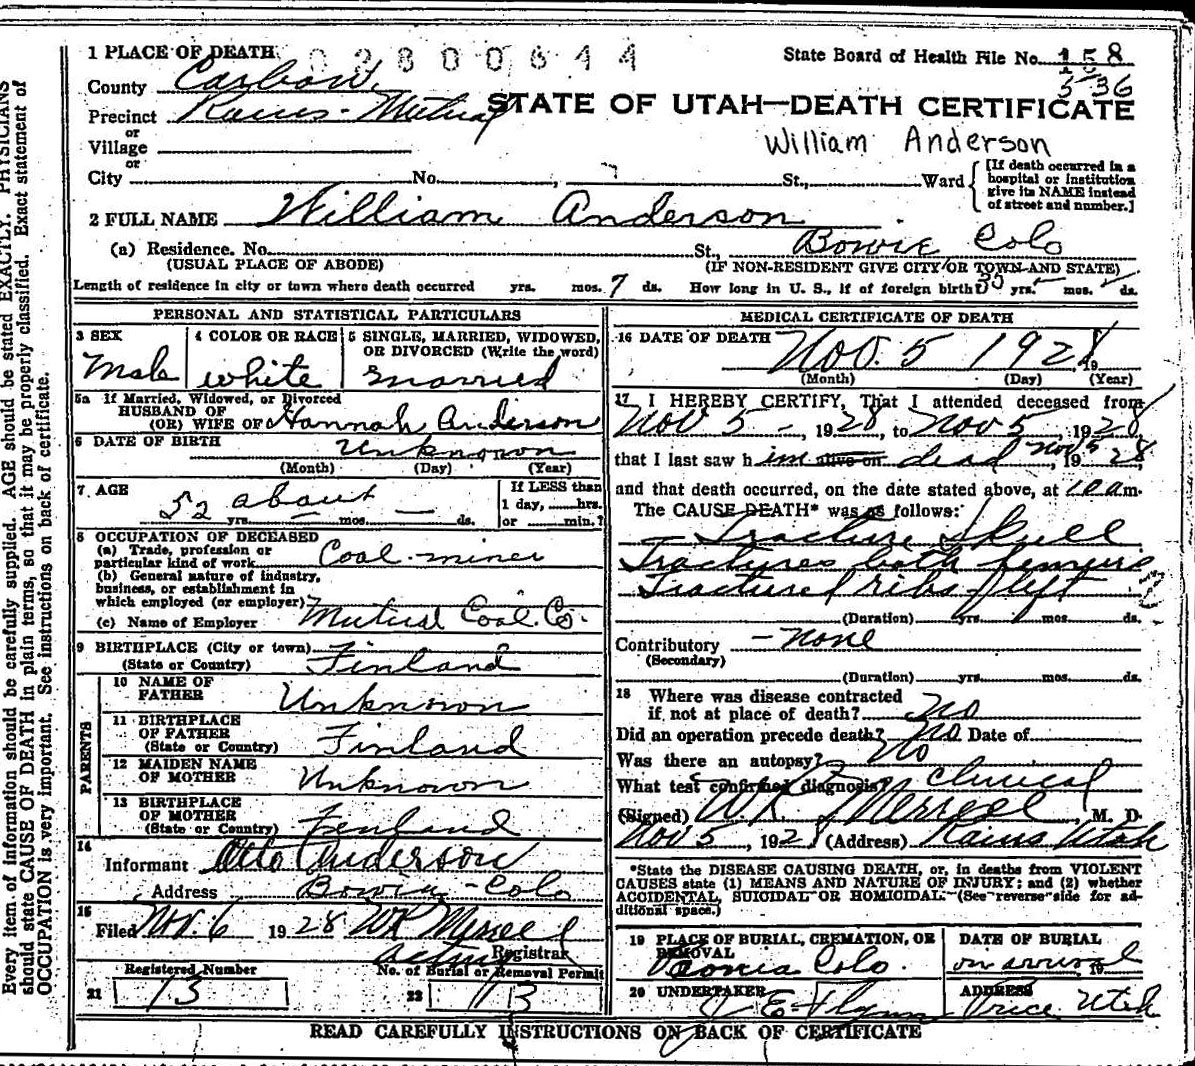 1 PLACE OF DEATH 02800644 State Board of Health File No. 158
County Carbon 536
Precinct Rains-Mutual STATE OF UTAH—DEATH CERTIFICATE
or
Village William Anderson
or
City No. , St., Ward {[If death occurred in a hospital or institution give its NAME instead of street and number.]
2 FULL NAME William Anderson
(a) Residence. No. St., Bowie Colo
(USUAL PLACE OF ABODE) (IF NON-RESIDENT GIVE CITY OR TOWN AND STATE)
Length of residence in city or town where death occurred yrs. mos. 7 ds. How long in U. S., if of foreign birth? yrs. mos. ds.
PERSONAL AND STATISTICAL PARTICULARS
3 SEX 4 COLOR OR RACE 5 SINGLE, MARRIED, WIDOWED,
OR DIVORCED (Write the word)
Male white married
5a If Married, Widowed, or Divorced
HUSBAND OF
(OR) WIFE OF Hannah Anderson
6 DATE OF BIRTH Unknown
(Month) (Day) (Year)
7 AGE If LESS than
52 about 1 day, hrs.
yrs. mos. ds. or min.?
8 OCCUPATION OF DECEASED
(a) Trade, profession or
particular kind of work Coal-miner
(b) General nature of industry,
business, or establishment in
which employed (or employer)
(c) Name of Employer Mutual Coal Co.
9 BIRTHPLACE (City or town)
(State or Country) Finland
PARENTS
10 NAME OF
FATHER Unknown
11 BIRTHPLACE
OF FATHER
(State or Country) Finland
12 MAIDEN NAME
OF MOTHER Unknown
13 BIRTHPLACE
OF MOTHER
(State or Country) Finland
14
Informant Otto Anderson
Address Bowie-Colo
15
Filed Nov. 6 1928 WK Merrell
Acting Registrar
Registered Number No. of Burial or Removal Permit
21 13 22 113
MEDICAL CERTIFICATE OF DEATH
16 DATE OF DEATH Nov. 5 1928 19
(Month) (Day) (Year)
17 I HEREBY CERTIFY, That I attended deceased from
Nov 5 - , 1928, to Nov 5 , 1928
that I last saw him alive on dead Nov 5, 1928
and that death occurred, on the date stated above, at 10 am.
The CAUSE DEATH* was as follows:
- Fracture Skull
Fractures both femurs
Fractured ribs left
(Duration) yrs. mos. ds.
Contributory - none
(Secondary)
(Duration) yrs. mos. ds.
18 Where was disease contracted
if not at place of death? no
Did an operation precede death? no Date of
Was there an autopsy? no
What test confirmed diagnosis? Clinical
(Signed) W.K. Merrell, M. D.
Nov 5, 1928 (Address) Rains Utah
*State the DISEASE CAUSING DEATH, or, in deaths from VIOLENT
CAUSES state (1) MEANS AND NATURE OF INJURY; and (2) whether
ACCIDENTAL, SUICIDAL OR HOMICIDAL. (See reverse side for ad-
ditional space.)
19 PLACE OF BURIAL, CREMATION, OR DATE OF BURIAL
REMOVAL
Paonia Colo. on arrival 19
20 UNDERTAKER ADDRESS
J E Flynn Price Utah
READ CAREFULLY INSTRUCTIONS ON BACK OF CERTIFICATE
Every item of information should be carefully supplied. AGE should be stated EXACTLY. PHYSICIANS
should state CAUSE OF DEATH in plain terms, so that it may be properly classified. Exact statement of
OCCUPATION is very important. See instructions on back of certificate.